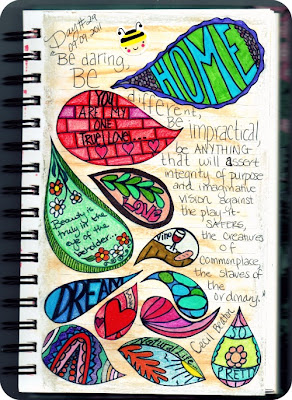 Day #29
09.09.2011
"Be daring,
Be
different,
Be
impractical,
be ANYTHING
that will assert
integrity of purpose
and imaginative
vision against
the play-it-
SAFERS,
the creatures
of
commonplace,
the slaves of
the
ordinary."
Cecil Beaton
HOME
YOU
ARE MY
ONE
TRUE LOVE...
LOVE
Beauty
truly is the
eye of the
beholder.
vino
DREAM
Natural Life
YO
PRETTY